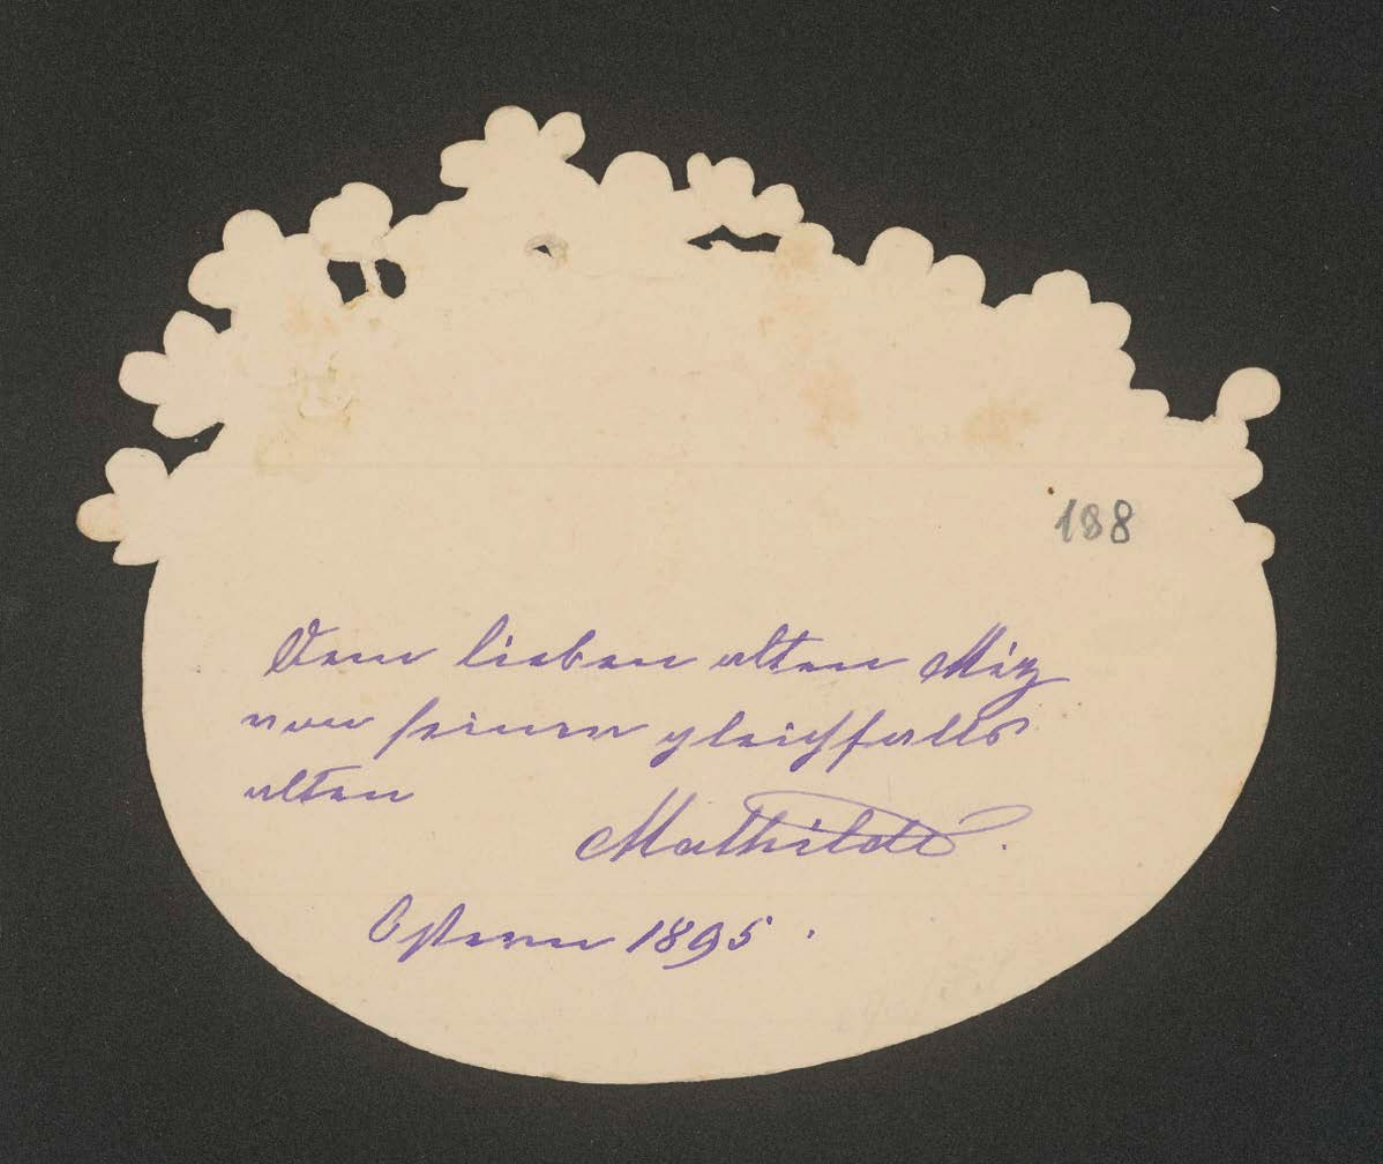 188
Dem lieben alten Miz
von seiner gleichfalls
alten
Mathilde.
Ostern 1895.